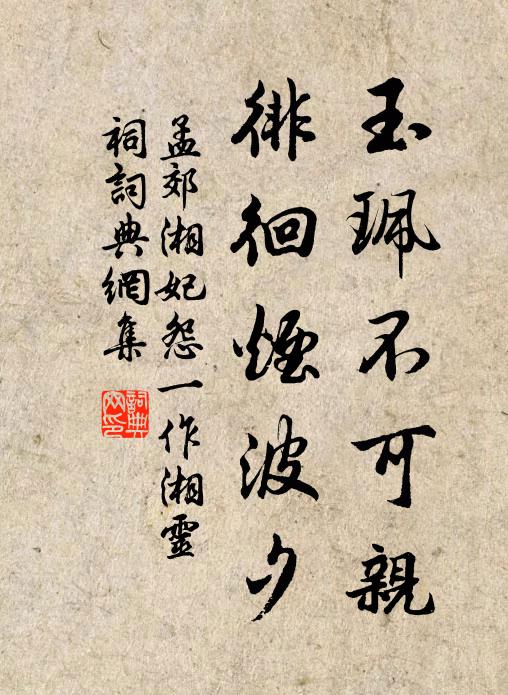 玉珮不可親
徘徊煙波夕
孟郊湘妃怨一作湘靈
祠詞典網集
詞典網印